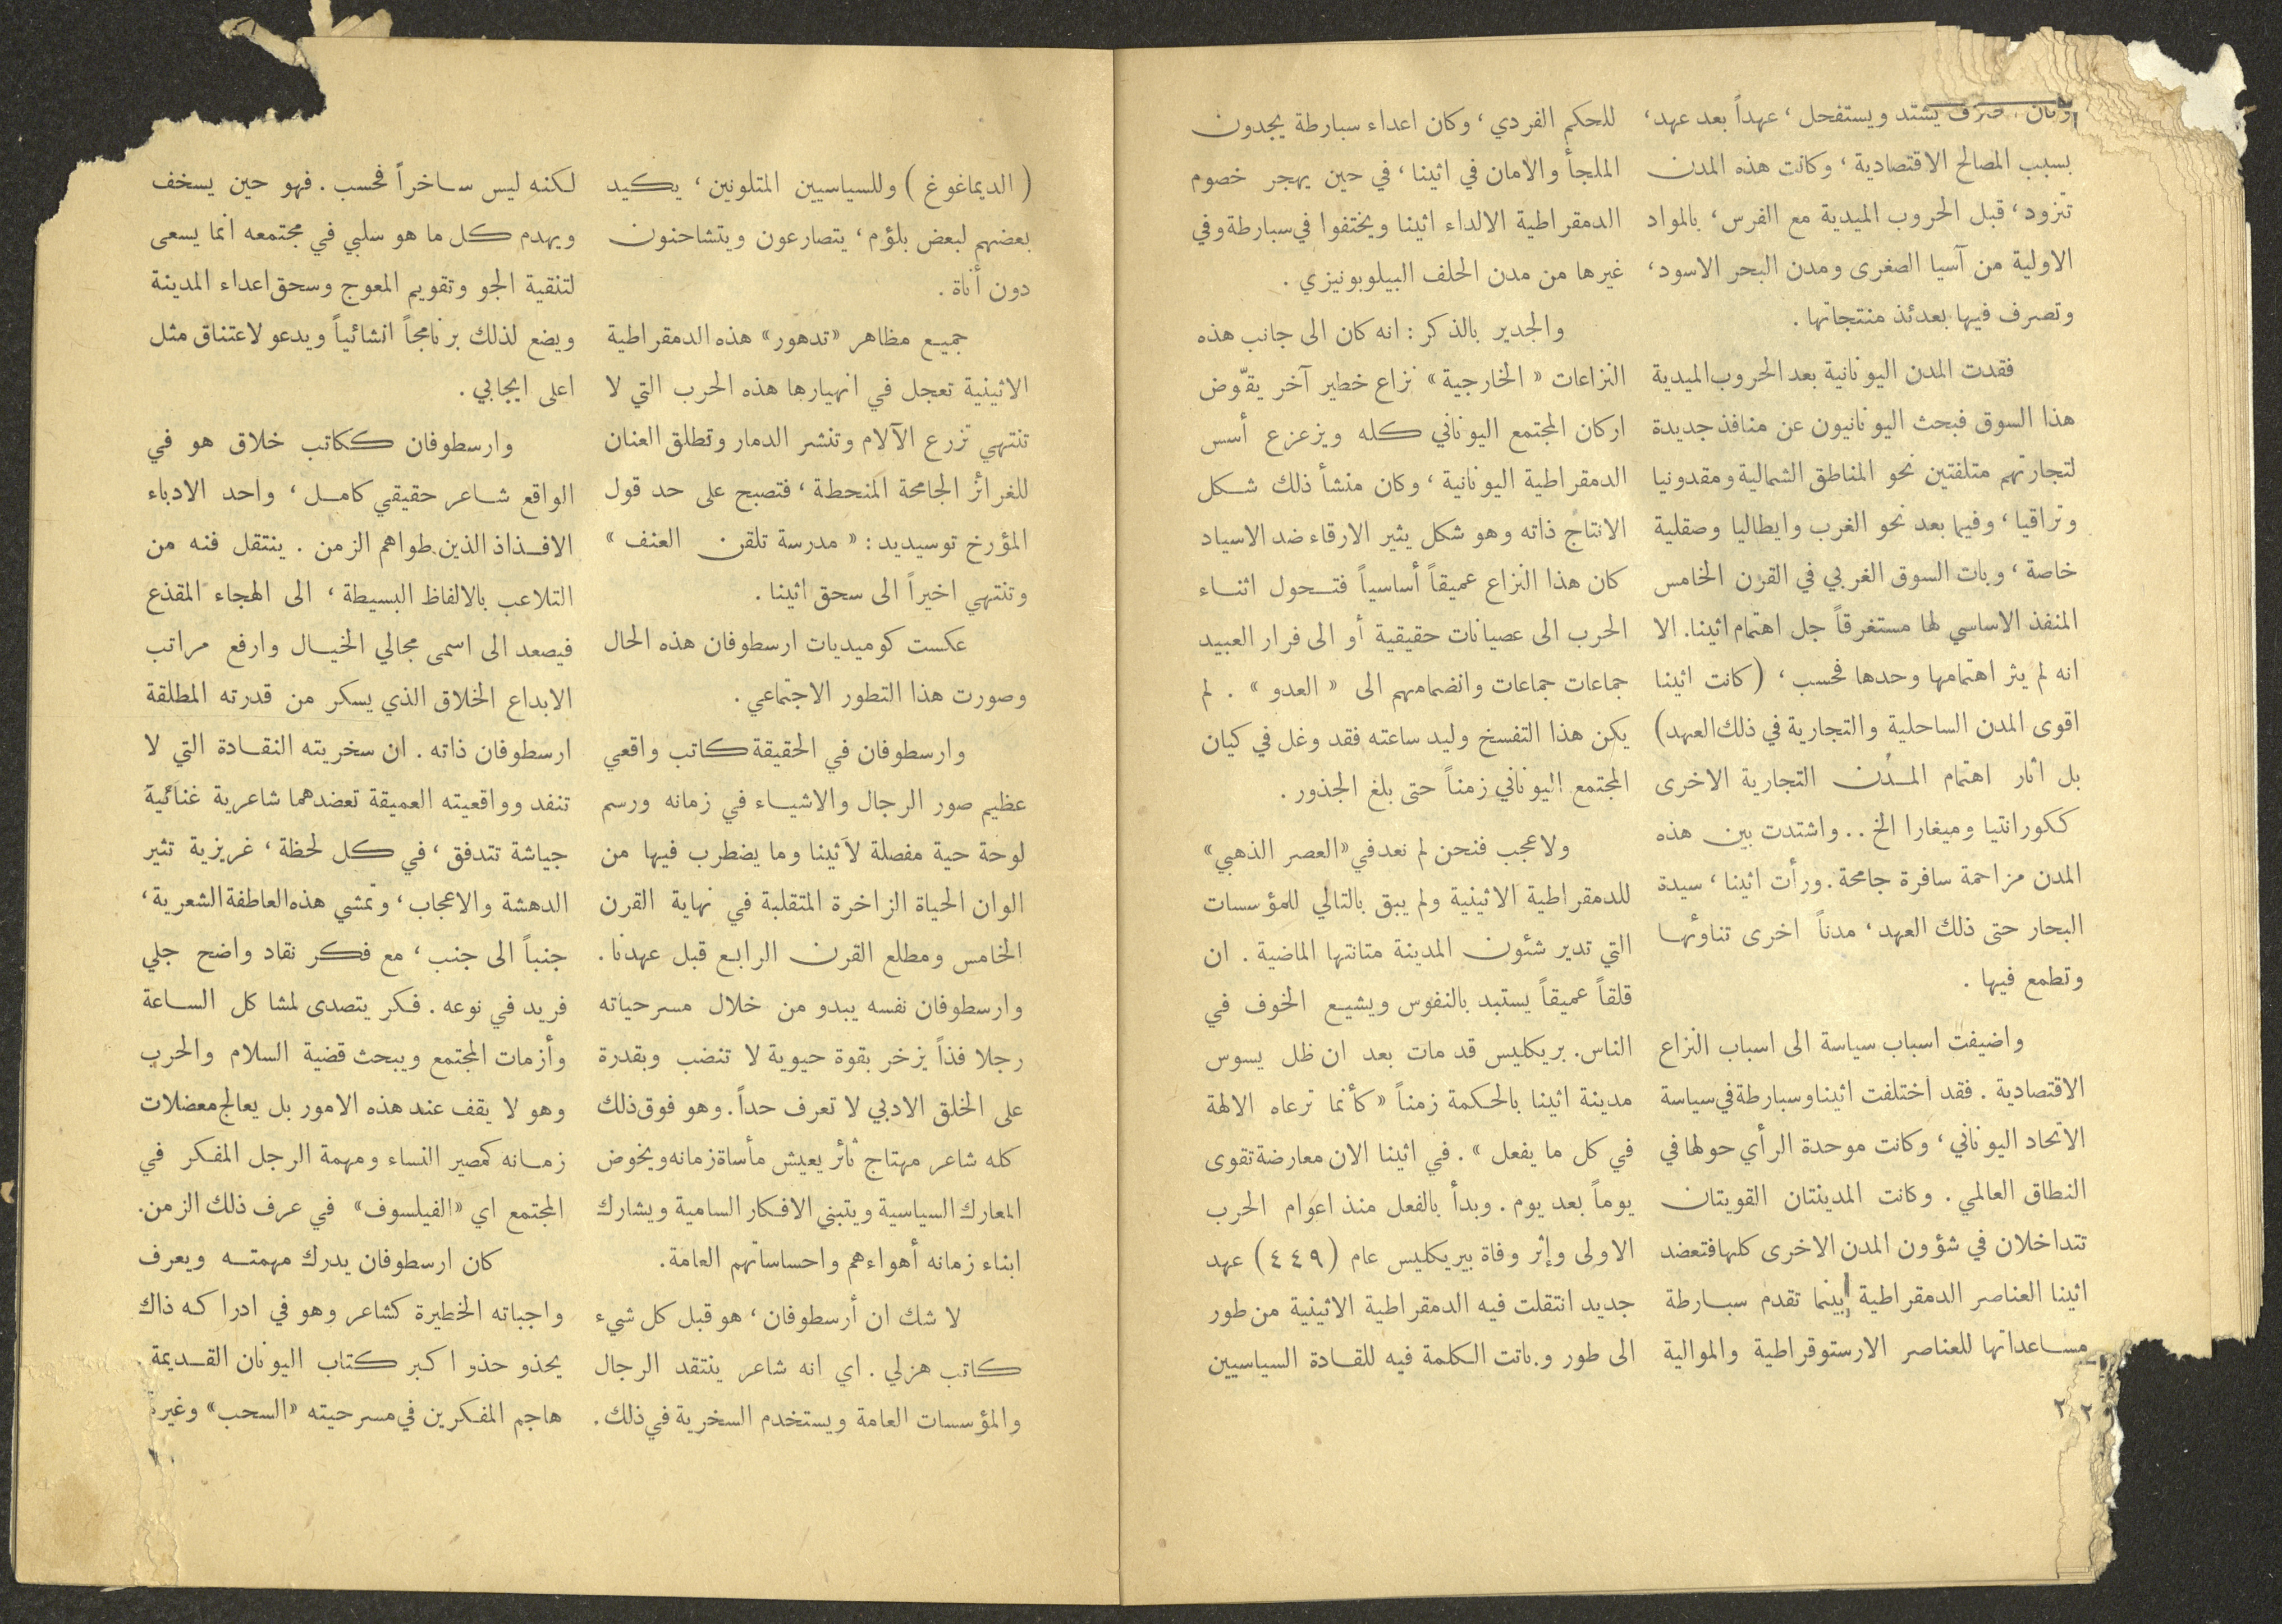 وكان يشتد ويستفحل ، عهداً بعد عهد ،
بسبب المصالح الاقتصادية ، وكانت هذه المدن
تتزود ، قبل الحروب الميدية مع الفرس ، بالمواد
الاولية من آسيا الصغرى ومدن البحر الاسود ،
وتصرف فيها بعدئذ منتجاتها .
فقدت المدن اليونانية بعد الحروب الميدية
هذا السوق فبحث اليونانيون عن منافذ جديدة
لتجارتهم متلفتين نحو المناطق الشمالية ومقدونيا
وتراقيا ، وفيما بعد نحو الغرب وايطاليا وصقلية
خاصة ، وبات السوق الغربي في القرن الخامس
المنفذ الاساسي لها مستغرقاً جل اهتمام اثينا . الا
انه لم يثر اهتمامها وحدها فحسب ، (كانت اثينا
اقوى المدن الساحلية والتجارية في ذلك العهد)
بل اثار اهتمام المدن التجارية الاخرى
ككورانتيا وميغارا الخ .. واشتدت بين هذه
المدن مزاحمة سافرة جامحة . ورأت اثينا ، سيدة
البحار حتى ذلك العهد ، مدناً اخرى تناوئها
وتطمع فيها .
واضيفت اسباب سياسة الى اسباب النزاع
الاقتصادية . فقد اختلفت اثينا وسبارطة في سياسة
الاتحاد اليوناني ، وكانت موحدة الرأي حولها في
النطاق العالمي . وكانت المدينتان القويتان
تتداخلان في شؤون المدن الاخرى كلها فتعضد
اثينا العناصر الدمقراطية بينما تقدم سبارطة
مساعداتها للعناصر الارستوقراطية والموالية
٢٢
للحكم الفردي ، وكان اعداء سبارطة يجدون
الملجأ والامان في اثينا ، في حين يهجر خصوم
الدمقراطية الالداء اثينا ويختفوا في سبارطة وفي
غيرها من مدن الحلف البيلوبونيزي .
والجدير بالذكر : انه كان الى جانب هذه
النزاعات « الخارجية » نزاع خطير آخر يقوّض
اركان المجتمع اليوناني كله ويزعزع أسس
الدمقراطية اليونانية ، وكان منشأ ذلك شكل
الانتاج ذاته وهو شكل يثير الارقاء ضد الاسياد
كان هذا النزاع عميقاً أساسياً فتحول اثناء
الحرب الى عصيانات حقيقية أو الى فرار العبيد
جماعات جماعات وانضمامهم الى « العدو » . لم
يكن هذا التفسخ وليد ساعته فقد وغل في كيان
المجتمع اليوناني زمناً حتى بلغ الجذور .
ولا عجب فنحن لم نعد في «العصر الذهبي»
للدمقراطية الاثينية ولم يبق بالتالي للمؤسسات
التي تدير شئون المدينة متانتها الماضية . ان
قلقاً عميقاً يستبد بالنفوس ويشيع الخوف في
الناس . بريكليس قد مات بعد ان ظل يسوس
مدينة اثينا بالحكمة زمناً « كأنما ترعاه الالهة
في كل ما يفعل » . في اثينا الان معارضة تقوى
يوماً بعد يوم . وبدأ بالفعل منذ اعوام الحرب
الاولى وإثر وفاة بيريكليس عام (٤٤٩) عهد
جديد انتقلت فيه الدمقراطية الاثينية من طور
الى طور وباتت الكلمة فيه للقادة السياسيين
( الديماغوغ ) وللسياسيين المتلونين ، يكيد
بعضهم لبعض بلؤم ، يتصارعون ويتشاحنون
دون أناة .
جميع مظاهر «تدهور» هذه الدمقراطية
الاثينية تعجل في انهيارها هذه الحرب التي لا
تنتهي تزرع الآلام وتنشر الدمار وتطلق العنان
للغرائز الجامحة المنحطة ، فتصبح على حد قول
المؤرخ توسيديد : « مدرسة تلقن العنف »
وتنتهي اخيراً الى سحق اثينا .
عكست كوميديات ارسطوفان هذه الحال
وصورت هذا التطور الاجتماعي .
وارسطوفان في الحقيقة كاتب واقعي
عظيم صور الرجال والاشياء في زمانه ورسم
لوحة حية مفصلة لاثينا وما يضطرب فيها من
الوان الحياة الزاخرة المتقلبة في نهاية القرن
الخامس ومطلع القرن الرابع قبل عهدنا .
وارسطوفان نفسه يبدو من خلال مسرحياته
رجلا فذاً يزخر بقوة حيوية لا تنضب وبقدرة
على الخلق الادبي لا تعرف حداً . وهو فوق ذلك
كله شاعر مهتاج ثائر يعيش مأساة زمانه ويخوض
المعارك السياسية ويتبنى الافكار السامية ويشارك
ابناء زمانه أهواءهم واحساساتهم العامة .
لا شك ان أرسطوفان ، هو قبل كل شيء
كاتب هزلي . اي انه شاعر ينتقد الرجال
والمؤسسات العامة ويستخدم السخرية في ذلك .
لكنه ليس ساخراً فحسب . فهو حين يسخف
ويهدم كل ما هو سلبي في مجتمعه انما يسعى
لتنقية الجو وتقويم المعوج وسحق اعداء المدينة
ويضع لذلك برنامجاً انشائياً ويدعو لاعتناق مثل
اعلى ايجابي .
وارسطوفان ككاتب خلاق هو في
الواقع شاعر حقيقي كامل ، واحد الادباء
الافذاذ الذين طواهم الزمن . ينتقل فنه من
التلاعب بالالفاظ البسيطة ، الى الهجاء المقذع
فيصعد الى اسمى مجالي الخيال وارفع مراتب
الابداع الخلاق الذي يسكر من قدرته المطلقة
ارسطوفان ذاته . ان سخريته النقادة التي لا
تنفد وواقعيته العميقة تعضدهما شاعرية غنائية
جياشة تتدفق ، في كل لحظة ، غريزية تثير
الدهشة والاعجاب ، وتمشي هذه العاطفة الشعرية ،
جنباً الى جنب ، مع فكر نقاد واضح جلي
فريد في نوعه . فكر يتصدى لمشاكل الساعة
وأزمات المجتمع ويبحث قضية السلام والحرب
وهو لا يقف عند هذه الامور بل يعالج معضلات
زمانه كمصير النساء ومهمة الرجل المفكر في
المجتمع اي «الفيلسوف» في عرف ذلك الزمن .
كان ارسطوفان يدرك مهمته ويعرف
واجباته الخطيرة كشاعر وهو في ادراكه ذاك
يحذو حذو اكبر كتاب اليونان القديمة .
هاجم المفكرين في مسرحيته «السحب» وغيرة